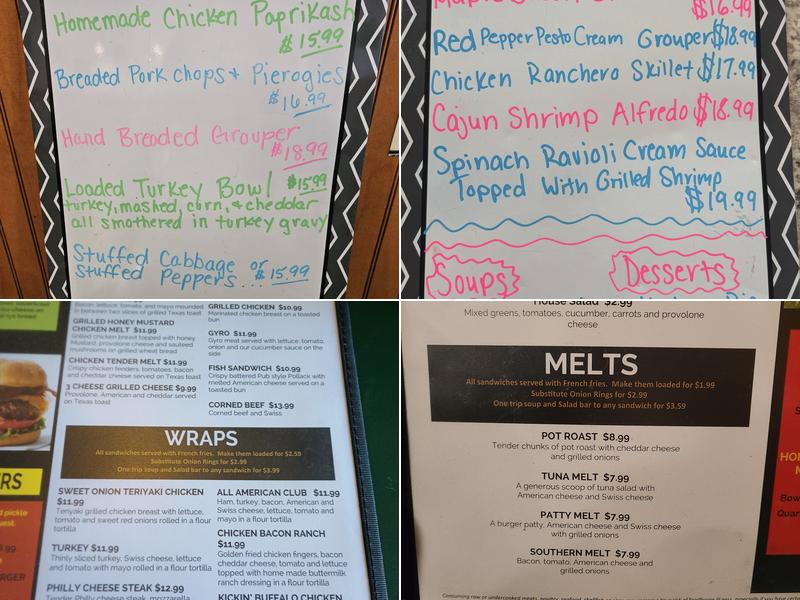 Homemade Chicken Paprikash
$15.99
Breaded Pork chops + Pierogies
$16.99
Hand Breaded Grouper
$18.99
Loaded Turkey Bowl $15.99
turkey, mashed, corn, + cheddar
all smothered in turkey gravy
Stuffed Cabbage or
Stuffed Peppers... $15.99
$16.99
Red Pepper Pesto Cream Grouper $18.99
Chicken Ranchero Skillet $17.99
Cajun Shrimp Alfredo $18.99
Spinach Ravioli Cream Sauce
Topped With Grilled Shrimp
$19.99
Soups
Desserts
Bacon, lettuce, tomato, and mayo mounded
in between two slices of grilled Texas toast
GRILLED HONEY MUSTARD
CHICKEN MELT $11.99
Grilled chicken breast topped with honey
Mustard, provolone cheese and sauteed
mushrooms on grilled wheat bread
CHICKEN TENDER MELT $11.99
Crispy chicken tenders, tomatoes, bacon
and cheddar cheese served on Texas toast
3 CHEESE GRILLED CHEESE $9.99
Provolone, American and cheddar served
on Texas toast
GRILLED CHICKEN $10.99
Marinated chicken breast on a toasted
bun
GYRO $11.99
Gyro meat served with lettuce, tomato,
onion and our cucumber sauce on the
side
FISH SANDWICH $10.99
Crispy battered Pub style Pollack with
melted American cheese served on a
toasted bun
CORNED BEEF $13.99
Corned beef and Swiss
WRAPS
All sandwiches served with French fries. Make them loaded for $2.59
Substitute Onion Rings for $2.99
One trip soup and Salad bar to any sandwich for $3.99
SWEET ONION TERIYAKI CHICKEN
$11.99
Teriyaki grilled chicken breast with lettuce,
tomato and sweet red onions rolled in a flour
tortilla
TURKEY $11.99
Thinly sliced turkey, Swiss cheese, lettuce
and tomato with mayo rolled in a flour tortilla
PHILLY CHEESE STEAK $12.99
Tender Philly cheese steak, mozzarella
ALL AMERICAN CLUB $11.99
Ham, turkey, bacon, American and
Swiss cheese, lettuce, tomato and
mayo in a flour tortilla
CHICKEN BACON RANCH
$11.99
Golden fried chicken fingers, bacon
cheddar cheese, tomato and lettuce
topped with home made buttermilk
ranch dressing in a flour tortilla
KICKIN' BUFFALO CHICKEN
ERS
pickle
House Salad $2.99
Mixed greens, tomatoes, cucumber, carrots and provolone
cheese
MELTS
All sandwiches served with French fries. Make them loaded for $1.99
Substitute Onion Rings for $2.99
One trip soup and Salad bar to any sandwich for $3.59
POT ROAST $8.99
Tender chunks of pot roast with cheddar cheese
and grilled onions
TUNA MELT $7.99
A generous scoop of tuna salad with
American cheese and Swiss cheese
PATTY MELT $7.99
A burger patty, American cheese and Swiss cheese
with grilled onions
SOUTHERN MELT $7.99
Bacon, tomato, American cheese and
grilled onions